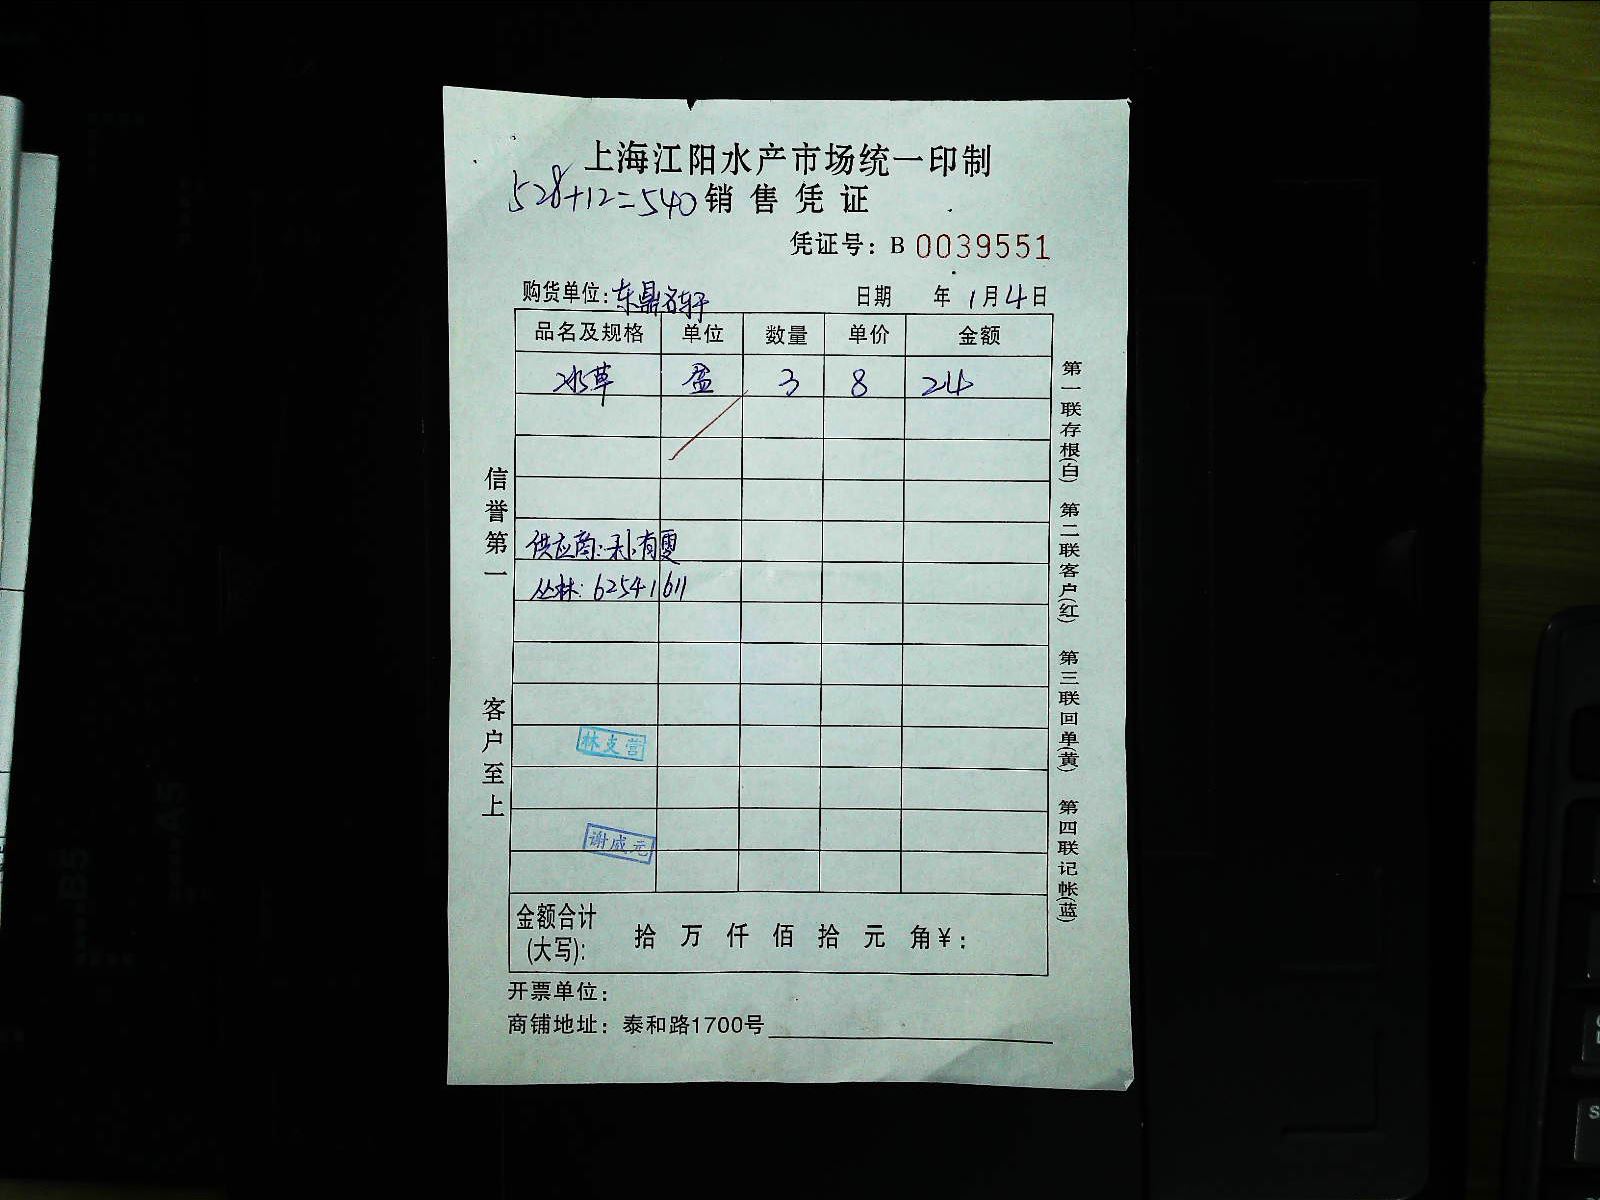 上海江阳水产市场统一印制
528+12=540 销售凭证
凭证号：B 0039551
购货单位：东鼎名轩 日期 年 1月4日
品名及规格 单位 数量 单价 金额
水草 盒 3 8 24
供应商：孙有雯
丛林：62541611
林支营
谢成元
金额合计(大写)： 拾 万 仟 佰 拾 元 角¥：
开票单位：
商铺地址：泰和路1700号
信誉第一 客户至上
第一联存根(白) 第二联客户(红) 第三联回单(黄) 第四联记帐(蓝)
B5
A5
S